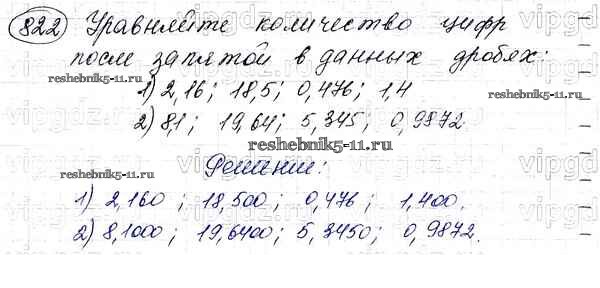 822 Уравняйте количество цифр
после запятой в данных дробях:
reshebnik5-11.ru
1) 2,16; 18,5; 0,476; 1,4
2) 8,1; 19,64; 5,345; 0,9872.
reshebnik5-11.ru
Решение:
reshebnik5-11.ru
1) 2,160; 18,500; 0,476; 1,400.
2) 8,1000; 19,6400; 5,3450; 0,9872.
vipgdz.ru